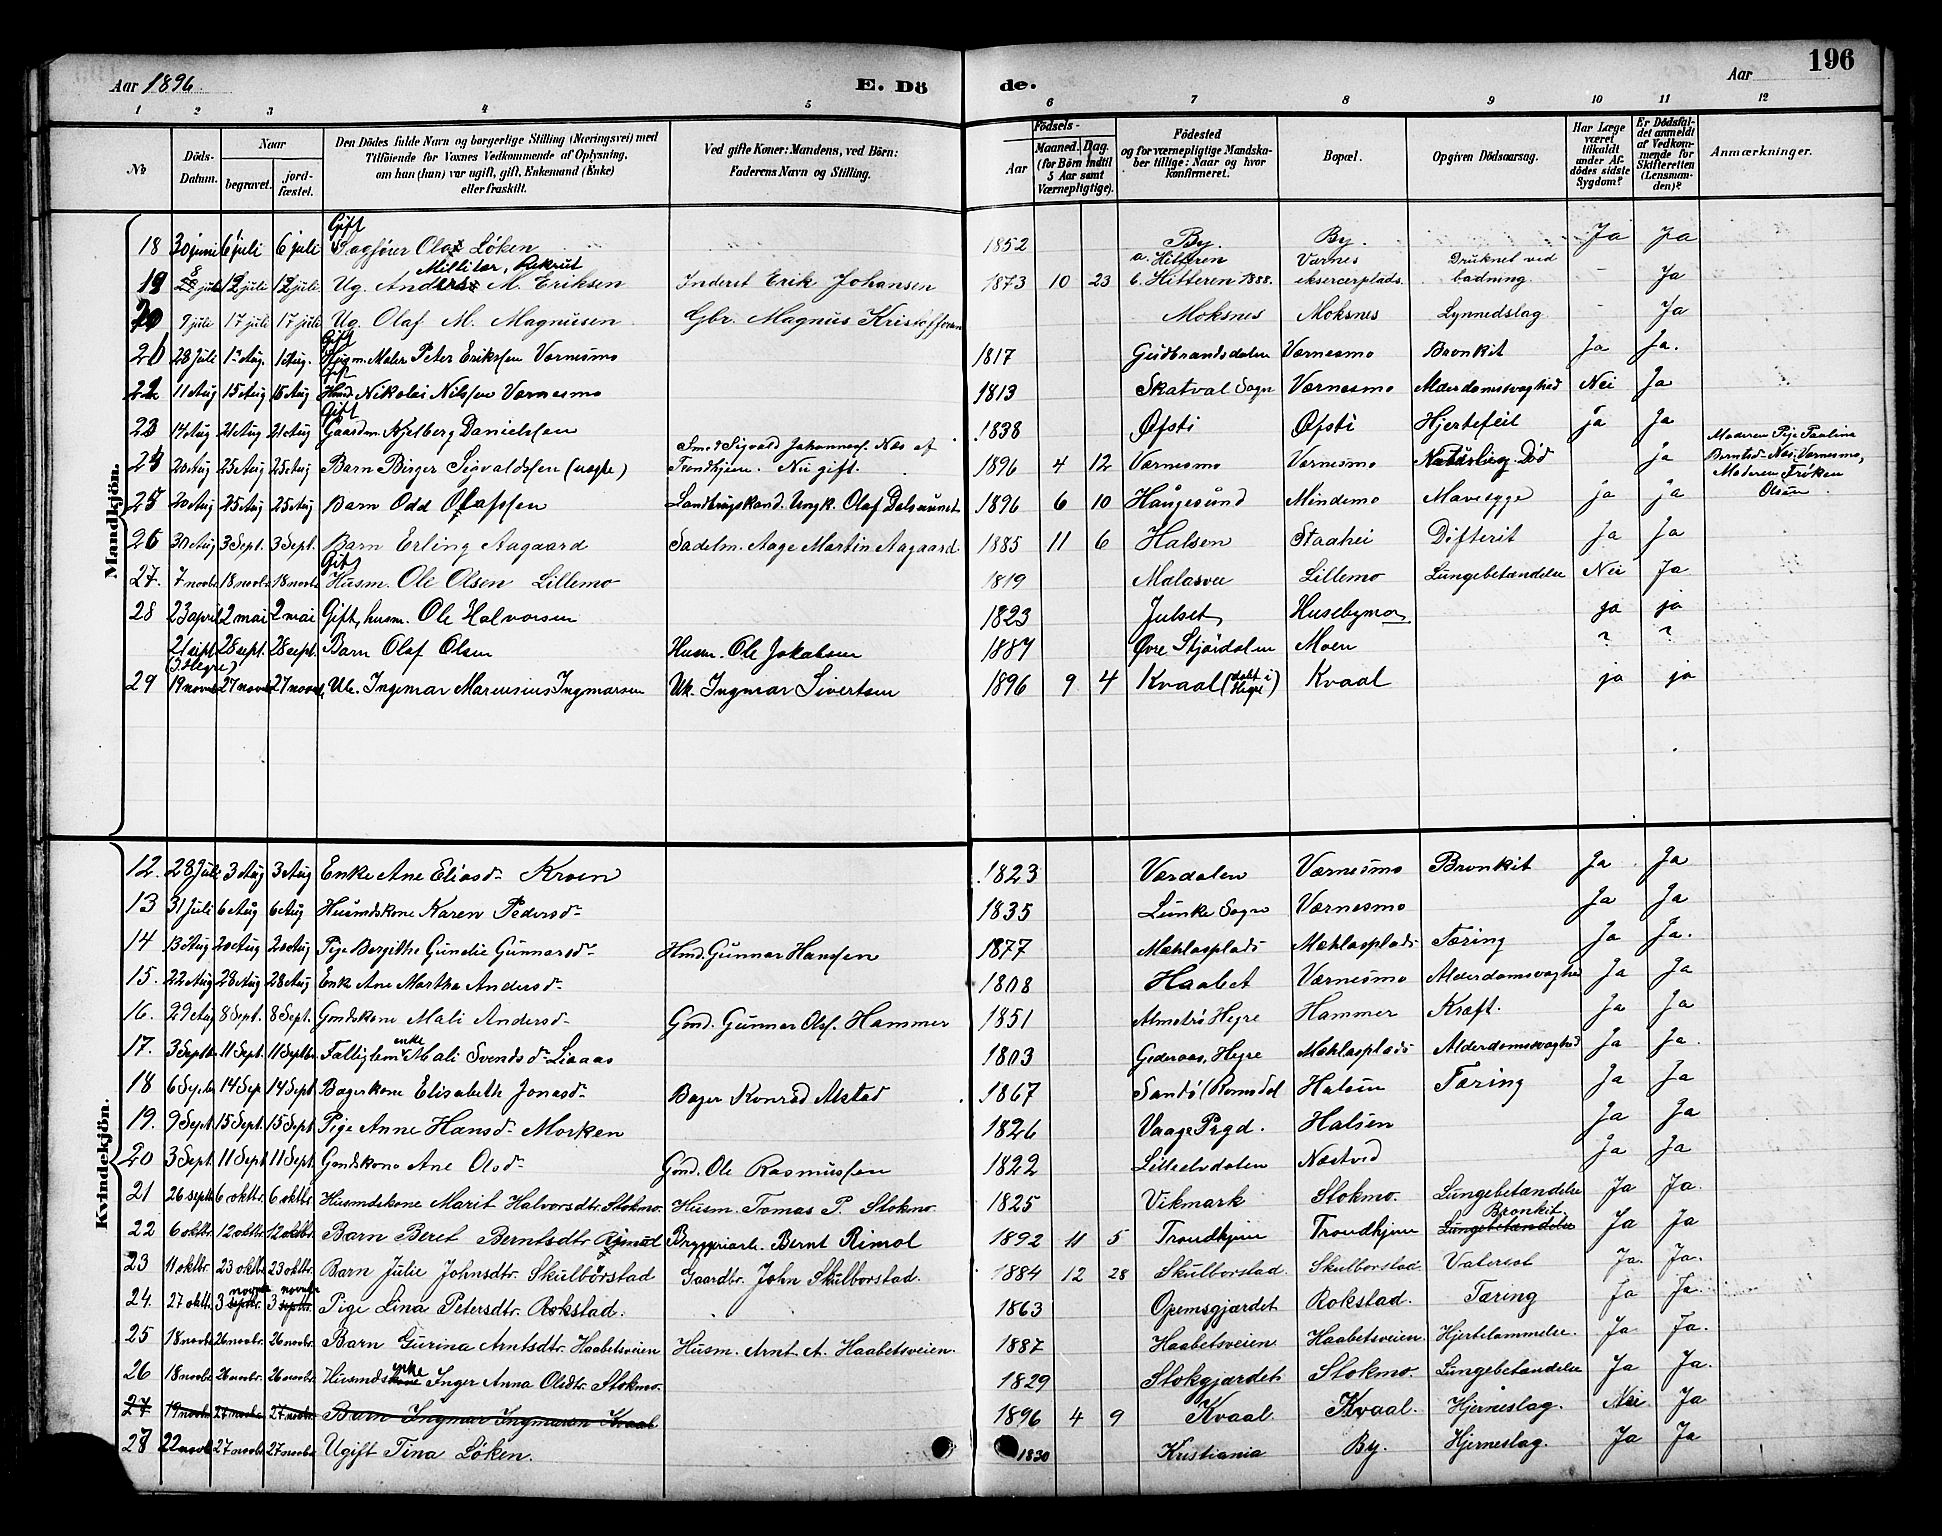 Aar 1896. E. Dö de. Aar 196
1 2 3 4 5 6 7 8 9 10 11 12
No
Döds-Datum.
Naar
begravet. jordfæstet.
Den Dödes fulde Navn og borgerlige Stilling (Næringsvei) med Tilföiende for Voxnes Vedkommende af Oplysning, om han (hun) var ugift, gift, Enkemand (Enke) eller fraskilt.
Ved gifte Koner: Mandens, ved Börn: Faderens Navn og Stilling.
Födsels-
Aar
Maaned. Dag. (for Börn indtil 5 Aar samt Værnepligtige).
Födested og for værnepligtige Mandskaber tillige: Naar og hvor konfirmeret.
Bopæl.
Opgiven Dödsaarsag.
Har Læge været tilkaldt under Afdödes sidste Sygdom?
Er Dödsfaldet anmeldt af Vedkommende for Skifteretten (Lensmanden)?
Anmærkninger.
Mandkjön.
18 30 juni 6 juli 6 juli Gift Sagfører Ola Löken 1852 By. By. Ja Ja
19 8 juli 12 juli 12 juli Ug. Anders M. Eriksen Militær, Rekrut Inderst Erik Johansen 1873 10 23 a. Hitteren b. Hitteren 1888. Værnes eksercerplads. Druknet ved badning. - Ja
20 9 juli 17 juli 17 juli Ug. Olaf M. Magnusen Gbr. Magnus Kristoffersen Moksnes Moksnes Lynnedslag - Ja
21 28 Juli 1 Aug. 1 Aug. Gift Husm. Maler Peter Eriksen Værnesmo 1817 Gudbrandsdalen Værnesmo Bronkit Ja Ja.
22 11 Aug 15 Aug 15 Aug Gift Husmd. Nikolai Nilssen Værnesmo 1813 Skatval Sogn Værnesmo Alderdomssvaghed Nei Ja
23 14 Aug 21 Aug 21 Aug Gift Gaardm. Kjelberg Danielssen 1838 Øfsti Øfsti Hjertefeil ja Ja
24 20 Aug 25 Aug 25 Aug Barn Birger Sigvaldssen (uægte) Smed Sigvald Johannesf. Næs af Trondhjem. Nu gift. 1896 4 12 Værnesmo Værnesmo Naturlig Död ja Moderen Pige Paulina Berntsd. Næs, Værnesmo,
25 20 Aug 25 Aug 25 Aug Barn Odd Olafssen Landbrugskand. Ungk. Olaf Dalsaunet 1896 6 10 Haugesund Mindemo Mavesyge ja ja Moderen Frøken Olsen.
26 30 Aug 3 Sept. 3 Sept. Barn Erling Aagaard Sadelm. Aage Martin Aagaard 1885 11 6 Halsen Staahei Difterit Ja Ja
27. 7 novbr 18 novbr. 18 novbr. Gift Husm. Ole Olsen Lillemo 1819 Malasvee Lillemo Lungebetændelse Nei Ja
28 23 april 2 mai 2 mai Gift, husm. Ole Halvorsen 1823 Julset Husebymo ja ja
21 sept. (i Hegre) 28 sept. 28 sept. Barn Olaf Olsen Husm. Ole Jakobsen 1887 Øvre Stjørdalen Moen ? ?
29 19 novbr 27 novbr 27 novbr. Uk. Ingemar Marcusius Ingmarsen Uk. Ingmar Sivertsen 1896 9 4 Kvaal (døbt i Hegre) Kvaal ja ja
Kvindekjön.
12. 28 Juli 3 Aug 3 Aug Enke Ane Eliasd. Kroen 1823 Værdalen Værnesmo Bronkit Ja Ja
13 31 Juli 6 Aug 6 Aug Husmdskone Karen Pedersd. 1835 Lunke Sogn Værnesmo Ja Ja
14 13 Aug 20 Aug 20 Aug Pige Bergitha Gunelie Gunnarsd. Hmd. Gunnar Hanssen 1877 Mæhlasplads Mæhlasplads Tæring Ja Ja.
15. 22 Aug 28 Aug 28 Aug Enke Ane Martha Andersd. 1808 Haabet Værnesmo Alderdomssvaghed Ja Ja
16. 29 Aug 8 Sept. 8 Sept. Gmdskone Mali Andersd. Gmd. Gunnar Olsf. Hammer 1851 Almetrø Hegre Hammer Kræft. Ja Ja
17. 3 Septbr 11 Sept. 11 Septbr. Fattiglem enke Mali Svendsd. Liaaas 1803 Gederaas, Hegre Mæhlasplads Alderdomssvaghed Ja Ja.
18 6 Septbr 14 Sep. 14 Sept Bagerkone Elisabeth Jonasd. Bager Konrad Alstad 1867 Sandø (Romsdal Halsen Tæring Ja Ja
19. 9 Sept 15 Sept. 15 Sept Pige Anne Hansd. Morken 1826 Vaage Prgd. Halsen Ja Ja
20 3 Sept. 11 Sept 11 Sept. Gmdskone Ane Olsd. Gmd. Ole Rasmussen 1822 Lilleelvdalen Næstved Ja Ja
21 26 septbr 6 oktbr. 6 oktbr. Husmdskone Marit Halvorsdtr. Stokmo. Husm. Tomas P. Stokmo. 1825 Vikmark Stokmo. Lungebetændelse Ja Ja.
22 6 oktbr. 12 oktbr. 12 oktbr. Barn Beret Berntsdtr Rimol Bryggeriarb. Bernt Rimol 1892 11 5 Trondhjem Trondhjem Bronkit. Lungebetændelse Ja Ja
23 11 oktbr. 23 oktbr. 23 oktbr. Barn Julie Johnsdtr. Skulbørstad Gaardbr. John Skulborstad. 1884 12 28 Skulborstad. Skulborstad. Vatersot Ja. Ja.
24. 27 oktbr. 3 novbr septbr. 3 novbr septbr. Pige Lina Petersdtr. Rokstad. 1863 Opemsgjærdet Rokstad. Tæring Ja Ja.
25 18 novbr. 26 novbr. 26 novbr. Barn Gurina Arntsdtr. Haabetsveien Husm. Arnt A. Haabetsveien. 1887 Haabetsveien Haabetsveien. Hjertelammelse. Ja Ja.
26 18 novbr. 26 novbr. 26 novbr. Husmdskone enke Inger Anna Olsdtr. Stokmo. 1829 Stokgjærdet Stokmo. Lungebetændelse Ja Ja.
27 19 novbr. 27 novbr. 27 novbr. Barn Ingmar Ingmarsen Kvaal 1896 4 9 Kvaal. Kvaal. Hjerneslag. Nei Ja
28 22 novbr 27 novbr. 27 novbr. Ugift Tina Löken. 1830 Kristiania By. Hjerneslag. Ja Ja